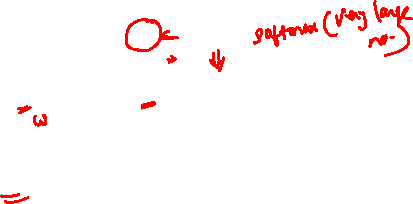 softmax (very large
no.)
w